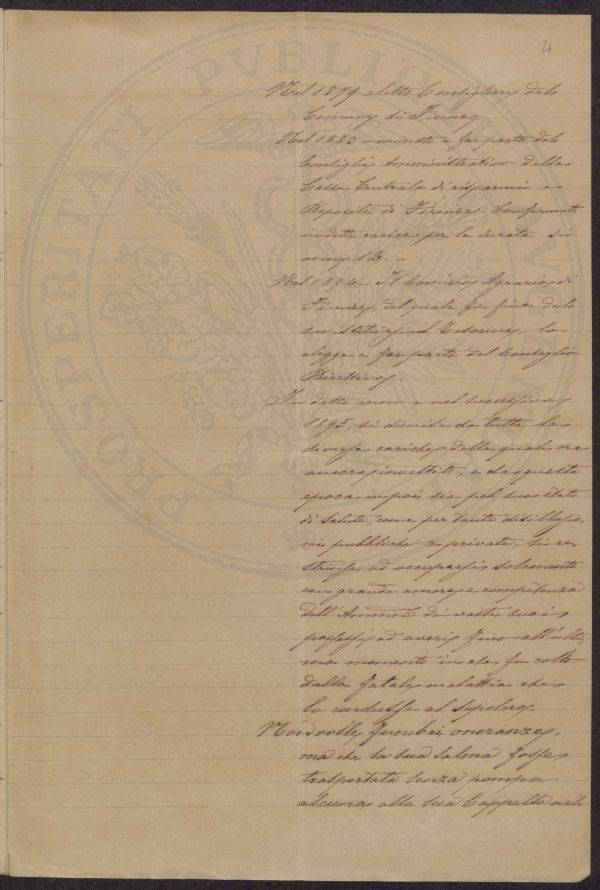 4
Nel 1879 eletto Consigliere del
Comune di Firenze
Nel 1883 nominato a far parte del
Consiglio Amministrativo della
Cassa Centrale di risparmi e
Depositi di Firenze. Confermato
in detta carica per la durata di
anni 12. -
Nel 1894. Il Comizio Agrario di
Firenze, del quale fu fino dal
suo istituirsi il Tesoriere, lo
elegge a far parte del Consiglio
Direttivo.
In detto anno e nel successivo
1895, si dimise da tutte le
diverse cariche delle quali era
ancora investito, e da questa
epoca in poi sia pel suo stato
di salute, come per tante disillusio,
ni pubbliche e private, si re
strinse ad occuparsi solamente
con grande amore e competenza
dell'Ammne dei vasti suoi
possessi ed averi fino all'ulti,
mo momento in che fu colto
dalla fatale malattia che
lo condusse al sepolcro.
Non volle funebri onoranze,
ma che la sua salma fosse
trasportata senza pompa
alcuna alla sua Cappella nel
PROSPERITATI PVBLIC